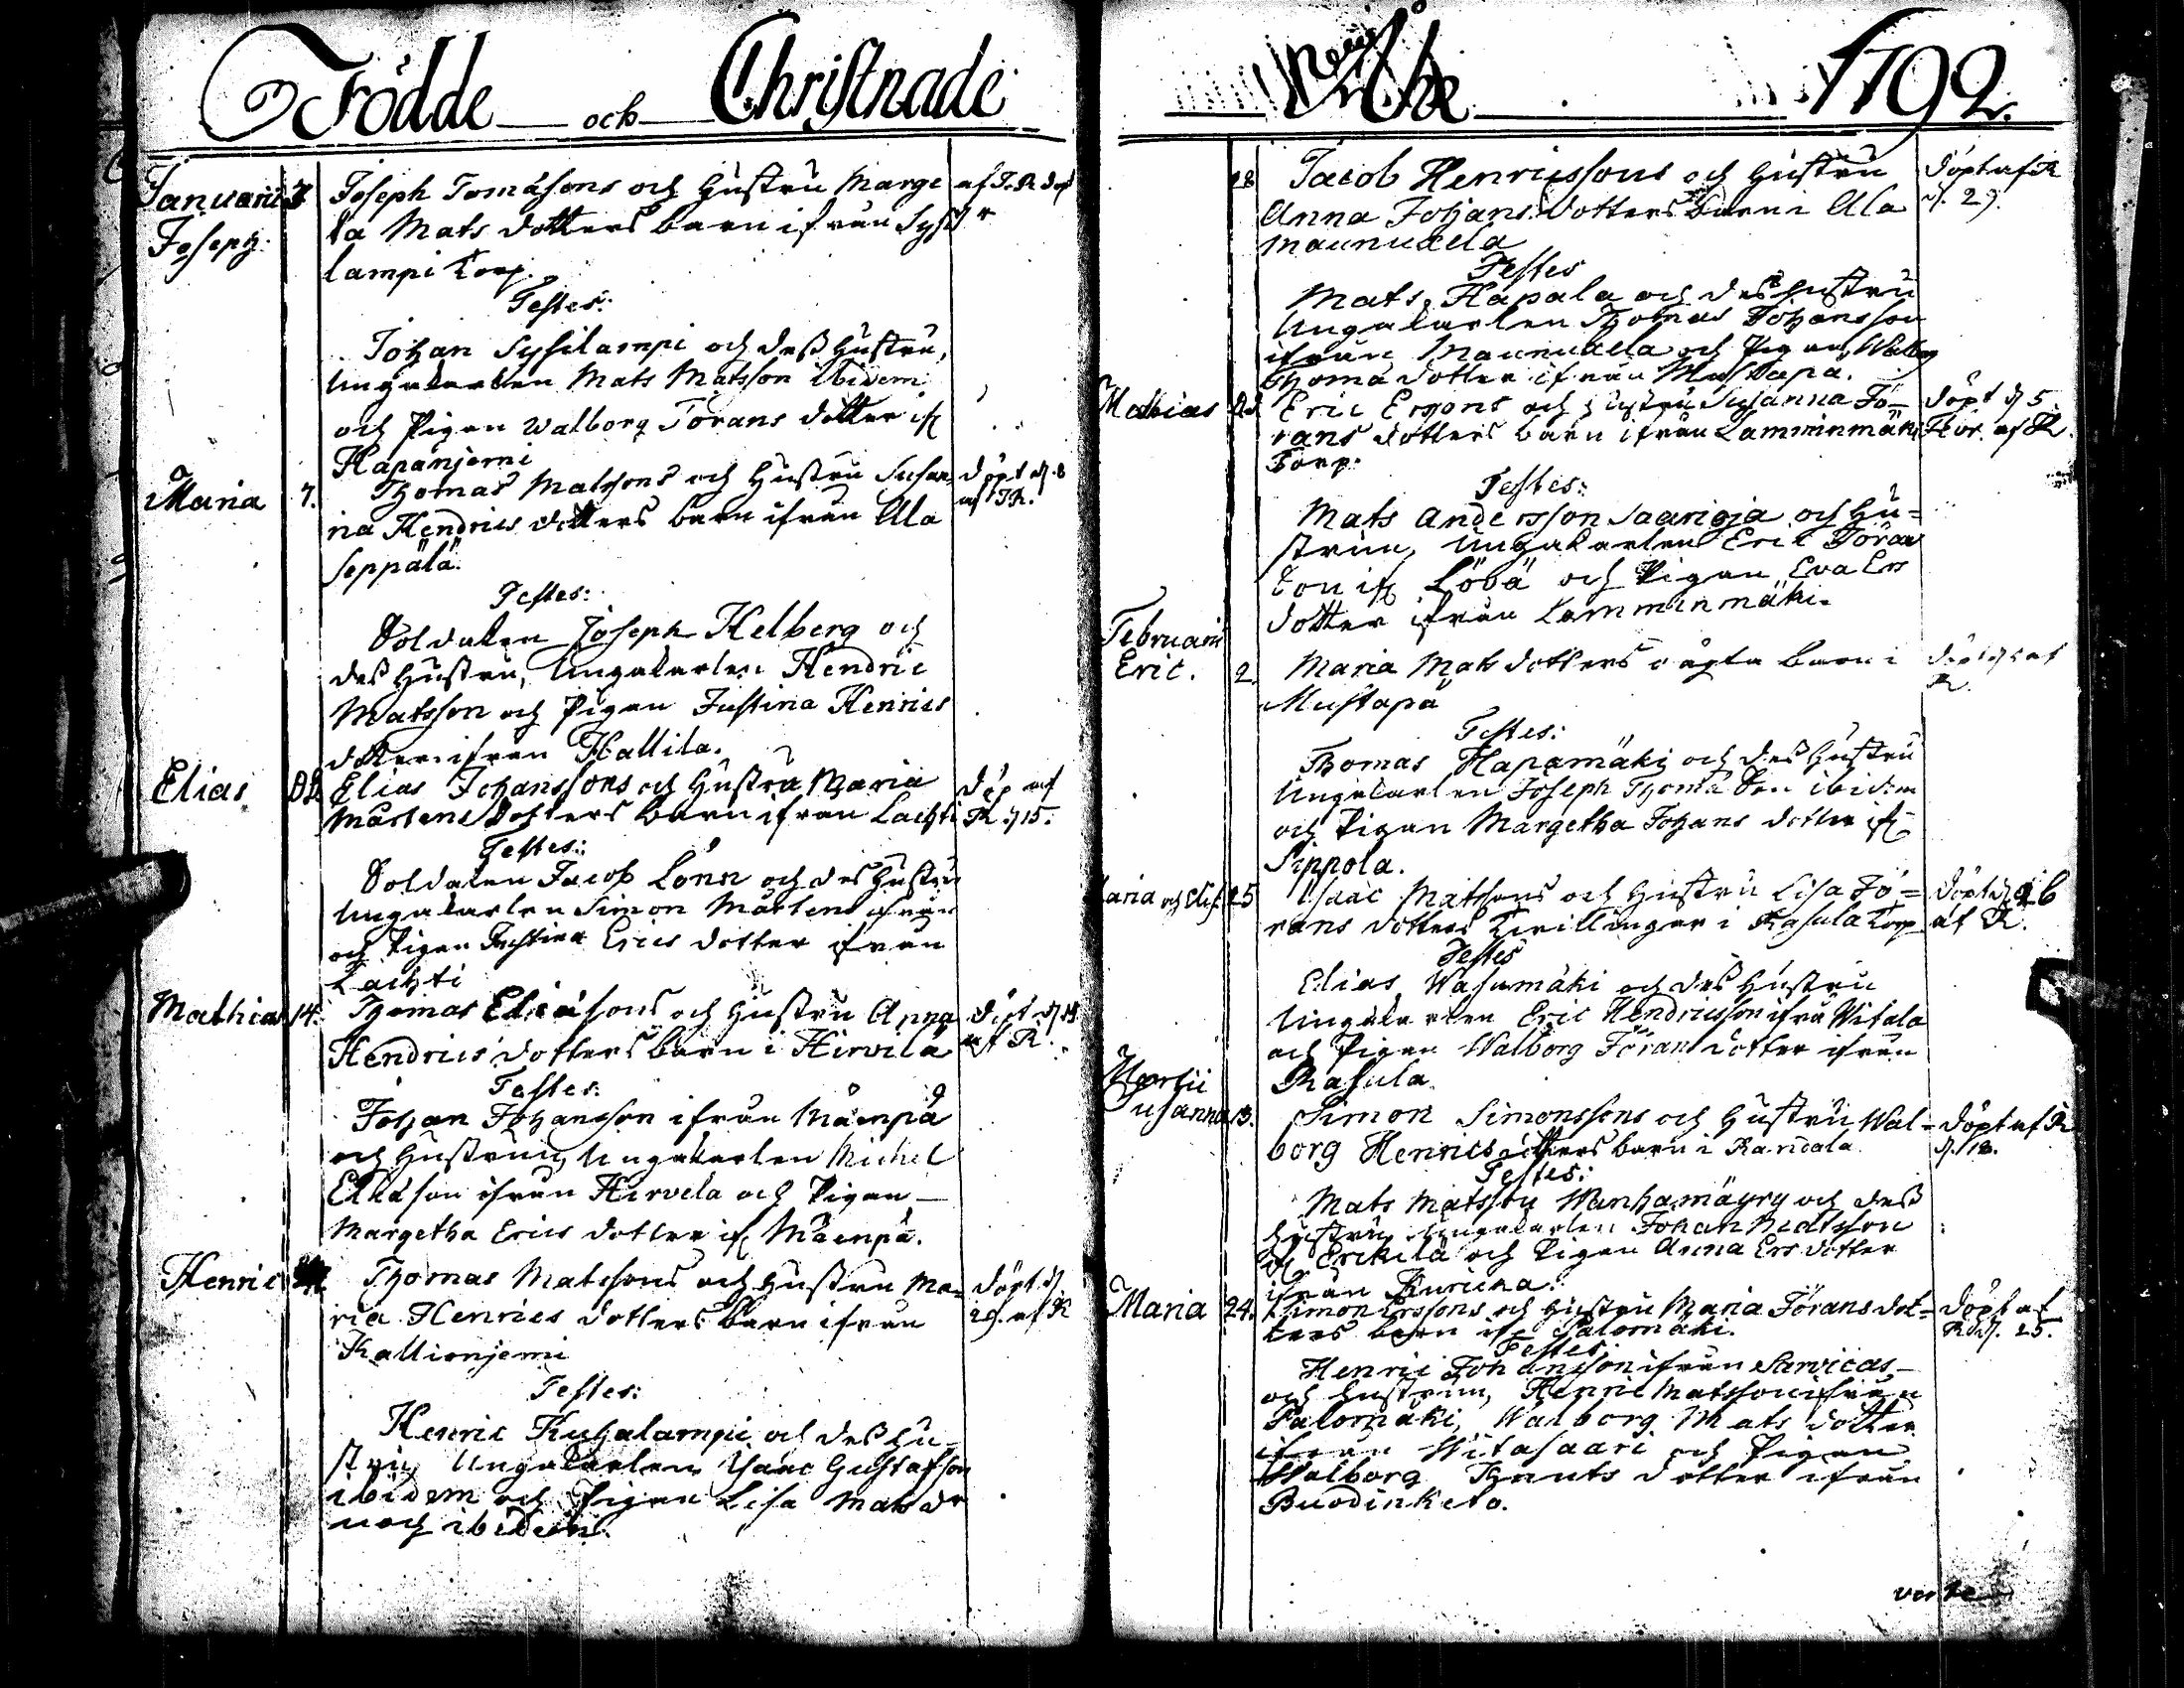 Födde och Christnade
Januarii 3 Joseph Tomasons och Hustru Marge af J. R. döpt
Joseph: ta Mats dotters barn ifrån Sysi
lampi torp.
Testes:
Johan Sysilampi och dess Hustru,
Ungakarlen Mats Matsson ibidem
och Pigan Walborg Jörans dotter if
Hapanjemi
Maria 7. Thomas Matssons och Hustru Susan döpt d. 8
na Hendrics dotters barn ifrån Ala af JR.
Seppälä.
Testes:
Soldaten Joseph Helberg och
des Hustru, Ungakarlen Hendric
Matsson och Pigan Justina Henrics
dotter ifrån Hallila.
Elias Elias Johanssons och Hustru Maria döp af
Mårtens dotters barn ifrån Lachti R d 15.
Testes:
Soldaten Jacob Lönn och des Hustru
Ungakarlen Simon Mårtens ifrån
och Pigan Justina Erics dotter ifrån
Lachti
Mathias 14. Thomas Eliasons och Hustru Anna döpt d
Hendrics dotters barn i Hirvela af R.
Testes:
Johan Johansson ifrån Mäenpä
och Hustrun, Ungakarlen Michel
Eliason ifrån Hirvela och Pigan
Margetha Erics dotter if Mäenpä.
Henric Thomas Matssons och Hustru Ma= döpt d.
ria Henrics dotters barn ifrån 29. af R
Kallionjemi
Testes:
Henric Kuhalampi och des Hu
stru, Ungakarlen Isaac Gustafson
ibidem och Pigan Lisa Mats dr
och ibidem.
1792.
28 Jacob Henricssons och Hustru Döpt af R
Anna Johans dotters barn i Ala d. 29.
Maunuxela
Testes
Mats Hapala och des Hustru
Ungakarlen Thomas Johansson
ifrån Maunuxela och Pigan Walborg
Thoma dotter ifrån Mustapä.
Mathias Eric Ersons och Hustru Susanna Jö= döpt d 5
rans dotters barn ifrån Lamminmäki Febr. af R.
Torp.
Testes:
Mats Andersson Saarioja och Hu=
strun, Ungakarlen Eric Jöran
son if Löbä och Pigan Eva Ers
dotter ifrån Lamminmäki.
Februarii
Eric. 2. Maria Mats dotters oägta barn i
Mustapä
Testes:
Thomas Hapamäki och des Hustru
Ungakarlen Joseph Thoma Son ibidem
och Pigan Margetha Johans dotter if
Sippola.
Maria och Elis 25 Isaac Matssons och Hustru Lisa Jö= döpt d 26
rans dotters Tvillingar i Rasula Torp af R.
Testes
Elias Wasumäki och des Hustru
Ungakarlen Eric Hendricsson ifrån Witala
och Pigan Walborg Jörans dotter ifrån
Rasula.
Martii
Susanna 13. Simon Simonssons och Hustru Wal= döpt af R
borg Henrics dotters barn i Rancala d. 18.
Testes:
Mats Matsson Wanhamäyry och dess
Hustru, Ungakarlen Johan Matsson
if Erickila och Pigan Anna Ers dotter
ifrån Kuricka.
Maria 24. Simon Erssons och Hustru Maria Jörans dot= döpt af
ters barn if Palomäki. R d. 25.
Testes
Henric Johansson ifrån Sarvicas
och Hustrun, Henric Matsson ifrån
Palomäki, Walborg Mats dotter
ifrån Witasaari och Pigan
Walborg Knuts dotter ifrån
Buodinketo.
verte